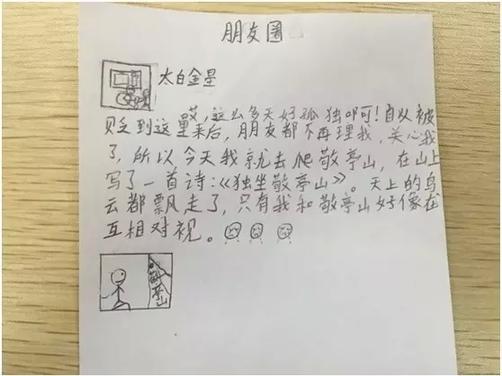 朋友圈
太白金星
哎,这么多天好孤独啊!自从被
贬到这里来后,朋友都不再理我,关心我
了,所以今天我就去爬敬亭山,在山上
写了一首诗:《独坐敬亭山》。天上的乌
云都飘走了,只有我和敬亭山好像在
互相对视。
敬亭山